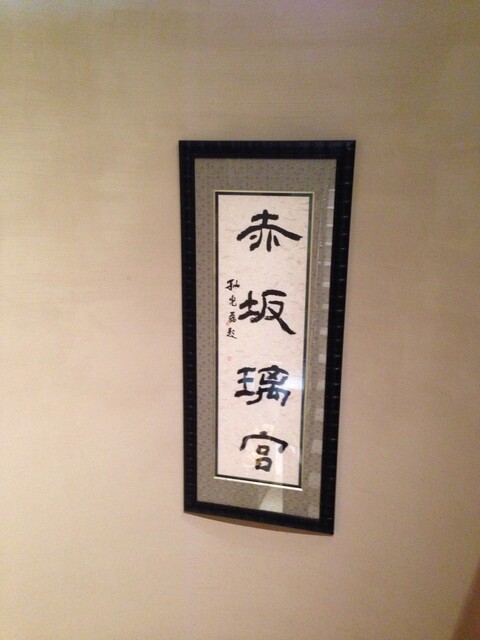 赤坂璃宮